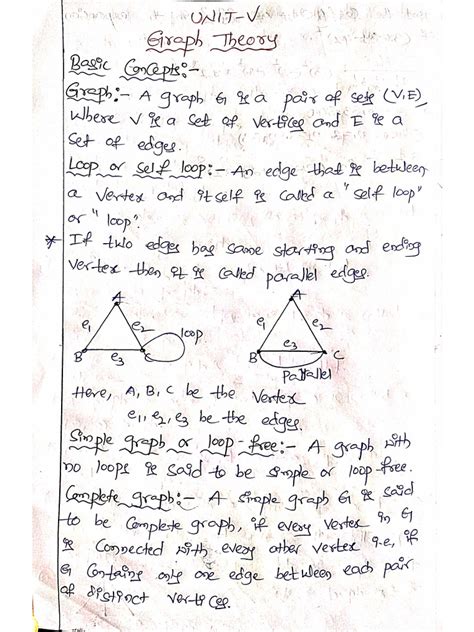 UNIT-V
Graph Theory
Basic Concepts:-
Graph:- A graph G is a pair of sets (V,E),
Where V is a set of vertices and E is a
set of edges.
Loop or self loop:- An edge that is between
a vertex and itself is called a "self loop"
or "loop".
* If two edges has same starting and ending
vertex then it is called parallel edges.
A
A
e1 e2 loop
e1 e2
B e3 C
B e3 C
Parallel
Here, A, B, C be the vertex
e1, e2, e3 be the edges.
Simple graph or loop-free:- A graph with
no loops is said to be simple or loop-free.
Complete graph:- A simple graph G is said
to be complete graph, if every vertex in G
is connected with every other vertex i.e, if
G contains only one edge between each pair
of distinct vertices.